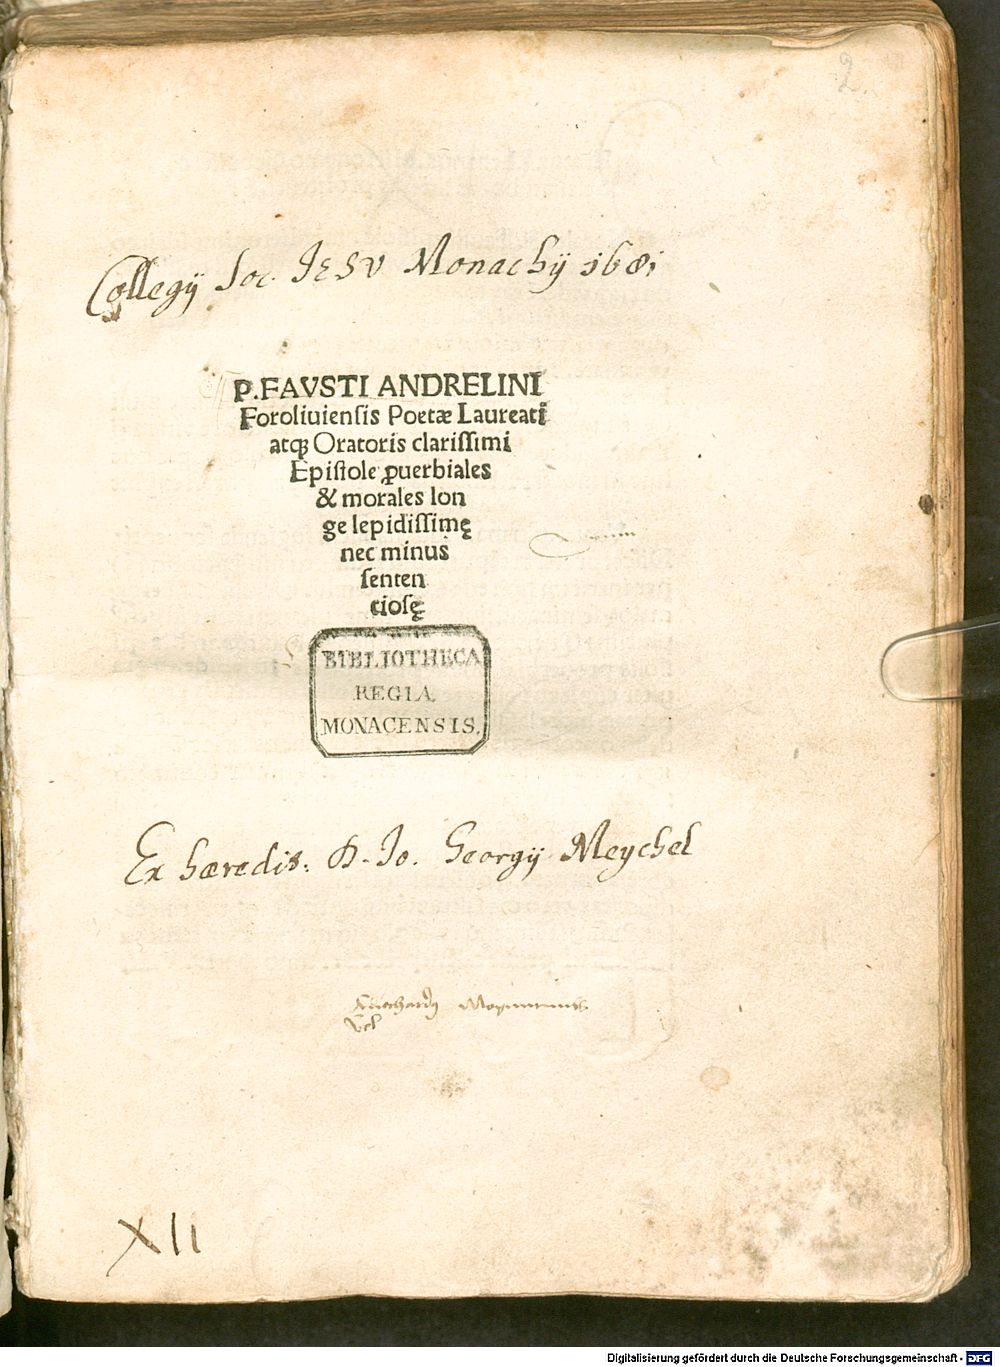 2
Collegij Soc. IESV Monachij 1681
P. FAVSTI ANDRELINI
Foroliuiensis Poetæ Laureati
atqꝫ Oratoris clarissimi
Epistole ꝓuerbiales
& morales lon
ge lepidissimę
nec minus
senten
ciosę
BIBLIOTHECA
REGIA
MONACENSIS.
Ex hæredit. D. Io. Georgij Meychel
XII
Digitalisierung gefördert durch die Deutsche Forschungsgemeinschaft - DFG